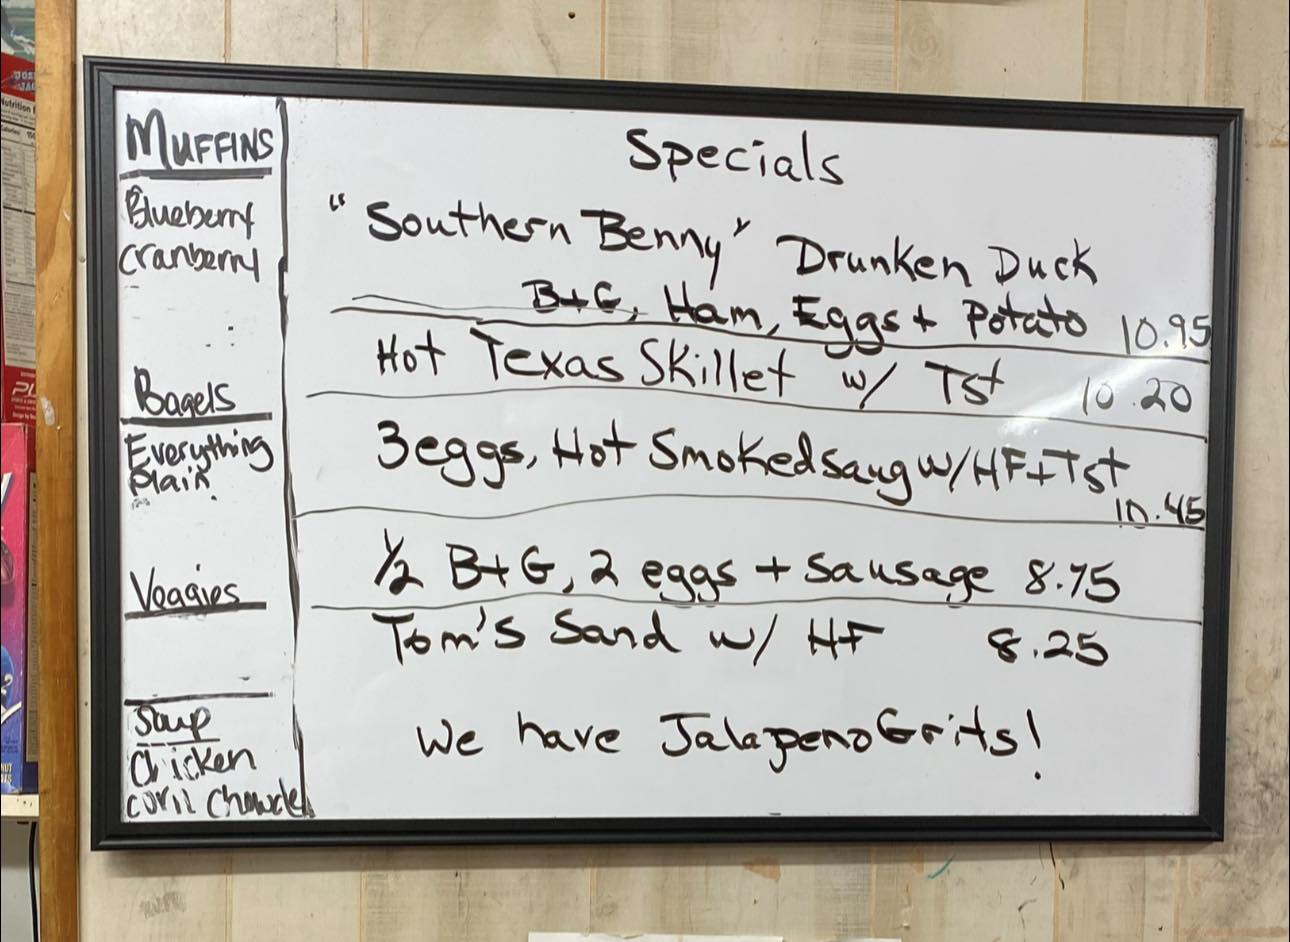 MUFFINS
Blueberry
cranberry
Bagels
Everything
Plain
Veggies
Soup
Chicken
corn Chowder
Specials
"Southern Benny" Drunken Duck
B+G, Ham, Eggs + Potato 10.95
Hot Texas Skillet w/ Tst 10.20
3 eggs, Hot Smoked Saug w/ HF + Tst
10.45
1/2 B+G, 2 eggs + Sausage 8.75
Tom's Sand w/ HF 8.25
We have Jalapeno Grits!